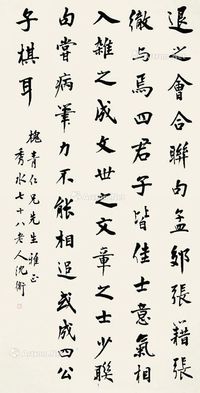 退之會合聯句孟郊張籍張
徹與焉四君子皆佳士意氣相
入雜之成文世之文章之士少聯
句嘗病筆力不能相追或成四公
子棋耳
槐青仁兄先生雅正
秀水七十八老人沈衛